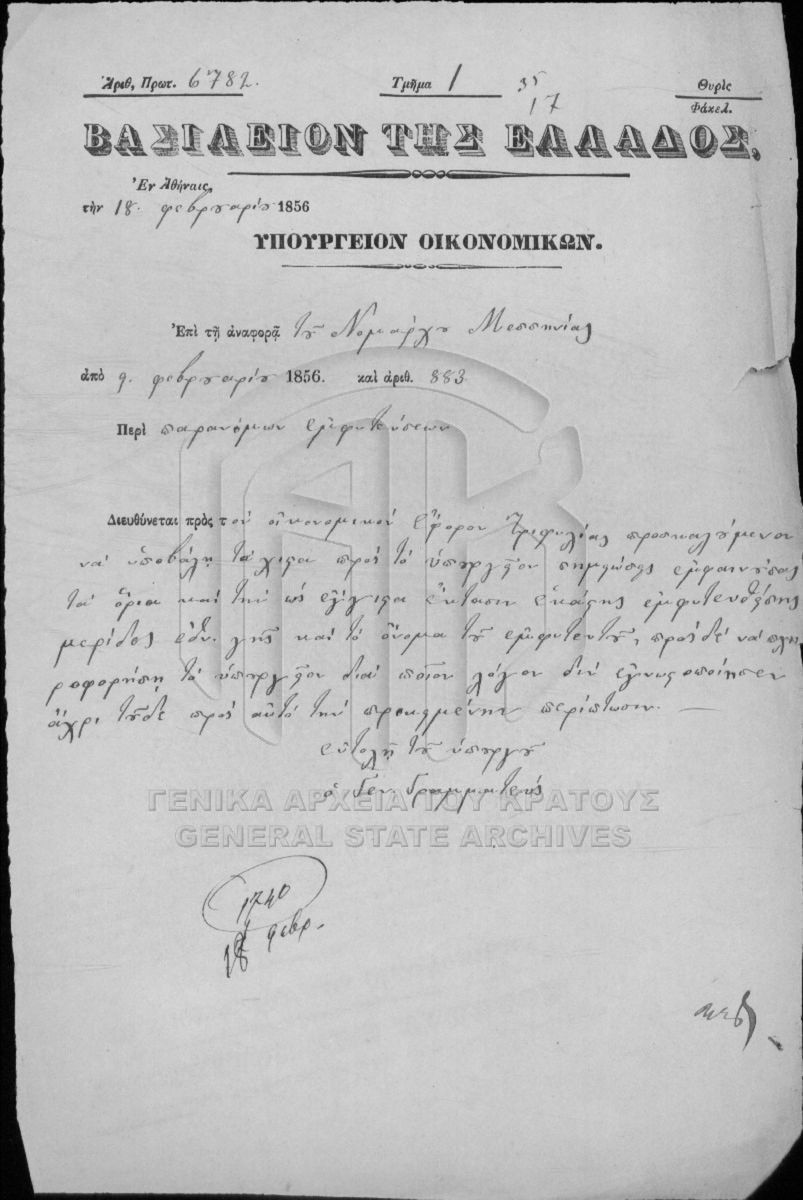 Ἀριθ. Πρωτ. 6782. Τμῆμα 1 35 Θυρὶς
17 Φάκελ.
ΒΑΣΙΛΕΙΟΝ ΤΗΣ ΕΛΛΑΔΟΣ,
Ἐν Ἀθήναις,
τὴν 18. φεβρουαρίου 1856
ΥΠΟΥΡΓΕΙΟΝ ΟΙΚΟΝΟΜΙΚΩΝ.
Ἐπὶ τῇ ἀναφορᾷ τοῦ Νομάρχου Μεσσηνίας
ἀπὸ 9. φεβρουαρίου 1856. καὶ ἀριθ. 883
Περὶ παρανόμων ἐμφυτεύσεων
Διευθύνεται πρὸς τὸν οἰκονομικὸν ἔφορον Τριφυλίας προσκαλούμενον
νὰ ὑποβάλῃ τάχιστα πρὸς τὸ ὑπουργεῖον σημειώσεις ἐμφαινούσας
τὰ ὅρια καὶ τὴν ὡς ἔγγιστα ἔκτασιν ἑκάστης ἐμφυτευθείσης
μερίδος ἐθν. γῆς καὶ τὸ ὄνομα τοῦ ἐμφυτευτοῦ, πρὸς δὲ νὰ πλη
ροφορήσῃ τὸ ὑπουργεῖον διὰ ποῖον λόγον δὲν ἐγνωστοποίησεν
ἄχρι τοῦδε πρὸς αὐτὸ τὴν προκειμένην περίπτωσιν. —
ἐντολῇ τοῦ ὑπουργοῦ
ὁ Γεν. Γραμματεὺς
ΓΕΝΙΚΑ ΑΡΧΕΙΑ ΤΟΥ ΚΡΑΤΟΥΣ
GENERAL STATE ARCHIVES
1740
18 φεβρ.